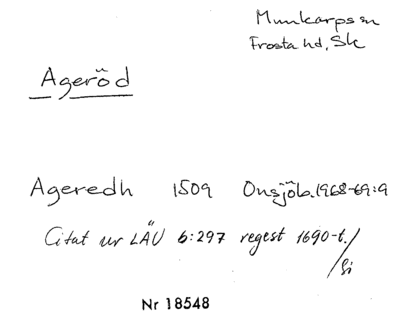 Munkarps sn
Frosta hd, Sk
Ageröd
Ageredh 1509 Onsjöb. 1968-69:9
Citat ur LÄU 6:297 regest 1690-t./
/Si
Nr 18548